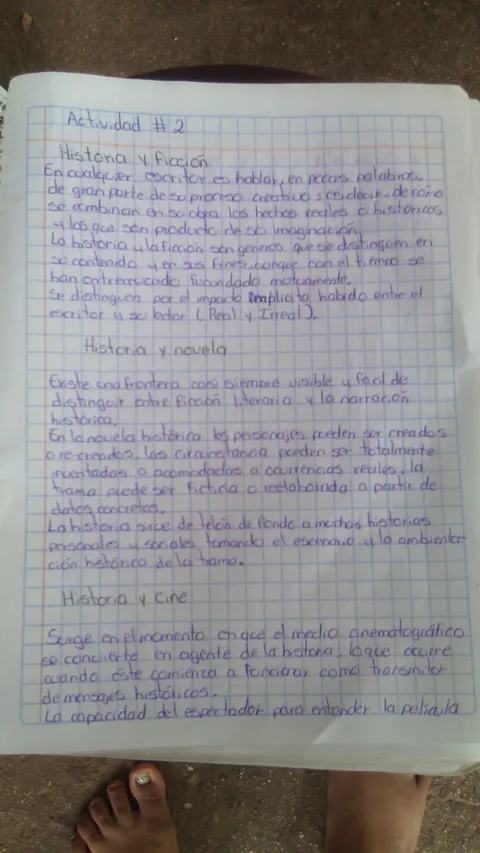 Actividad # 2
Historia y ficción
En cualquier escritor es hablar, en pocas palabras,
de gran parte de su proceso creativo, es decir, de como
se combinan en su obra los hechos reales o históricos
y los que son producto de su imaginación.
La historia y la ficción son generos que se distinguen en
su contenido y en sus fines, aunque con el tiempo se
han entrecruzado fucundado mutuamente.
Se distinguen por el impacto implicito habido entre el
escritor y su lector (Real y Irreal).
Historia y novela
Existe una frontera casi siempre visible y facil de
distinguir entre ficción literaria y la narración
histórica.
En la novela histórica los personajes pueden ser creados
o re-creados, las circunstancia pueden ser totalmente
inventadas o acomodadas a ocurrencias reales, la
trama puede ser ficticia o reelaborada a partir de
datos concretos.
La historia sirve de telón de fondo a muchas historias
personales y sociales tomando el escenario y la ambienta-
ción histórico de la trama.
Historia y cine
Surge en el momento en que el medio cinematográfico
se convierte en agente de la historia, lo que ocurre
cuando éste comienza a funcionar como transmitor
de mensajes históricos.
La capacidad del espectador para entender la pelicula